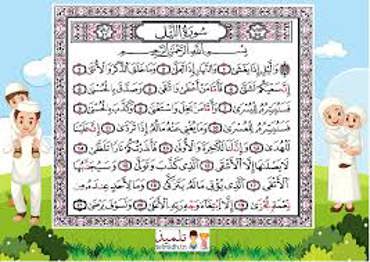 سُورَةُ اللَّيْلِ
بِسْمِ اللَّهِ الرَّحْمَٰنِ الرَّحِيمِ
وَالَّيْلِ إِذَا يَغْشَىٰ ١ وَالنَّهَارِ إِذَا تَجَلَّىٰ ٢ وَمَا خَلَقَ الذَّكَرَ وَالْأُنثَىٰ ٣
إِنَّ سَعْيَكُمْ لَشَتَّىٰ ٤ فَأَمَّا مَنْ أَعْطَىٰ وَاتَّقَىٰ ٥ وَصَدَّقَ بِالْحُسْنَىٰ ٦
فَسَنُيَسِّرُهُ لِلْيُسْرَىٰ ٧ وَأَمَّا مَن بَخِلَ وَاسْتَغْنَىٰ ٨ وَكَذَّبَ بِالْحُسْنَىٰ ٩
فَسَنُيَسِّرُهُ لِلْعُسْرَىٰ ١٠ وَمَا يُغْنِي عَنْهُ مَالُهُ إِذَا تَرَدَّىٰ ١١ إِنَّ عَلَيْنَا
لَلْهُدَىٰ ١٢ وَإِنَّ لَنَا لَلْآخِرَةَ وَالْأُولَىٰ ١٣ فَأَنذَرْتُكُمْ نَارًا تَلَظَّىٰ ١٤
لَا يَصْلَىٰهَا إِلَّا الْأَشْقَى ١٥ الَّذِي كَذَّبَ وَتَوَلَّىٰ ١٦ وَسَيُجَنَّبُهَا
الْأَتْقَى ١٧ الَّذِي يُؤْتِي مَالَهُ يَتَزَكَّىٰ ١٨ وَمَا لِأَحَدٍ عِندَهُ مِن
نِّعْمَةٍ تُجْزَىٰ ١٩ إِلَّا ابْتِغَاءَ وَجْهِ رَبِّهِ الْأَعْلَىٰ ٢٠ وَلَسَوْفَ يَرْضَىٰ ٢١
تلميذ